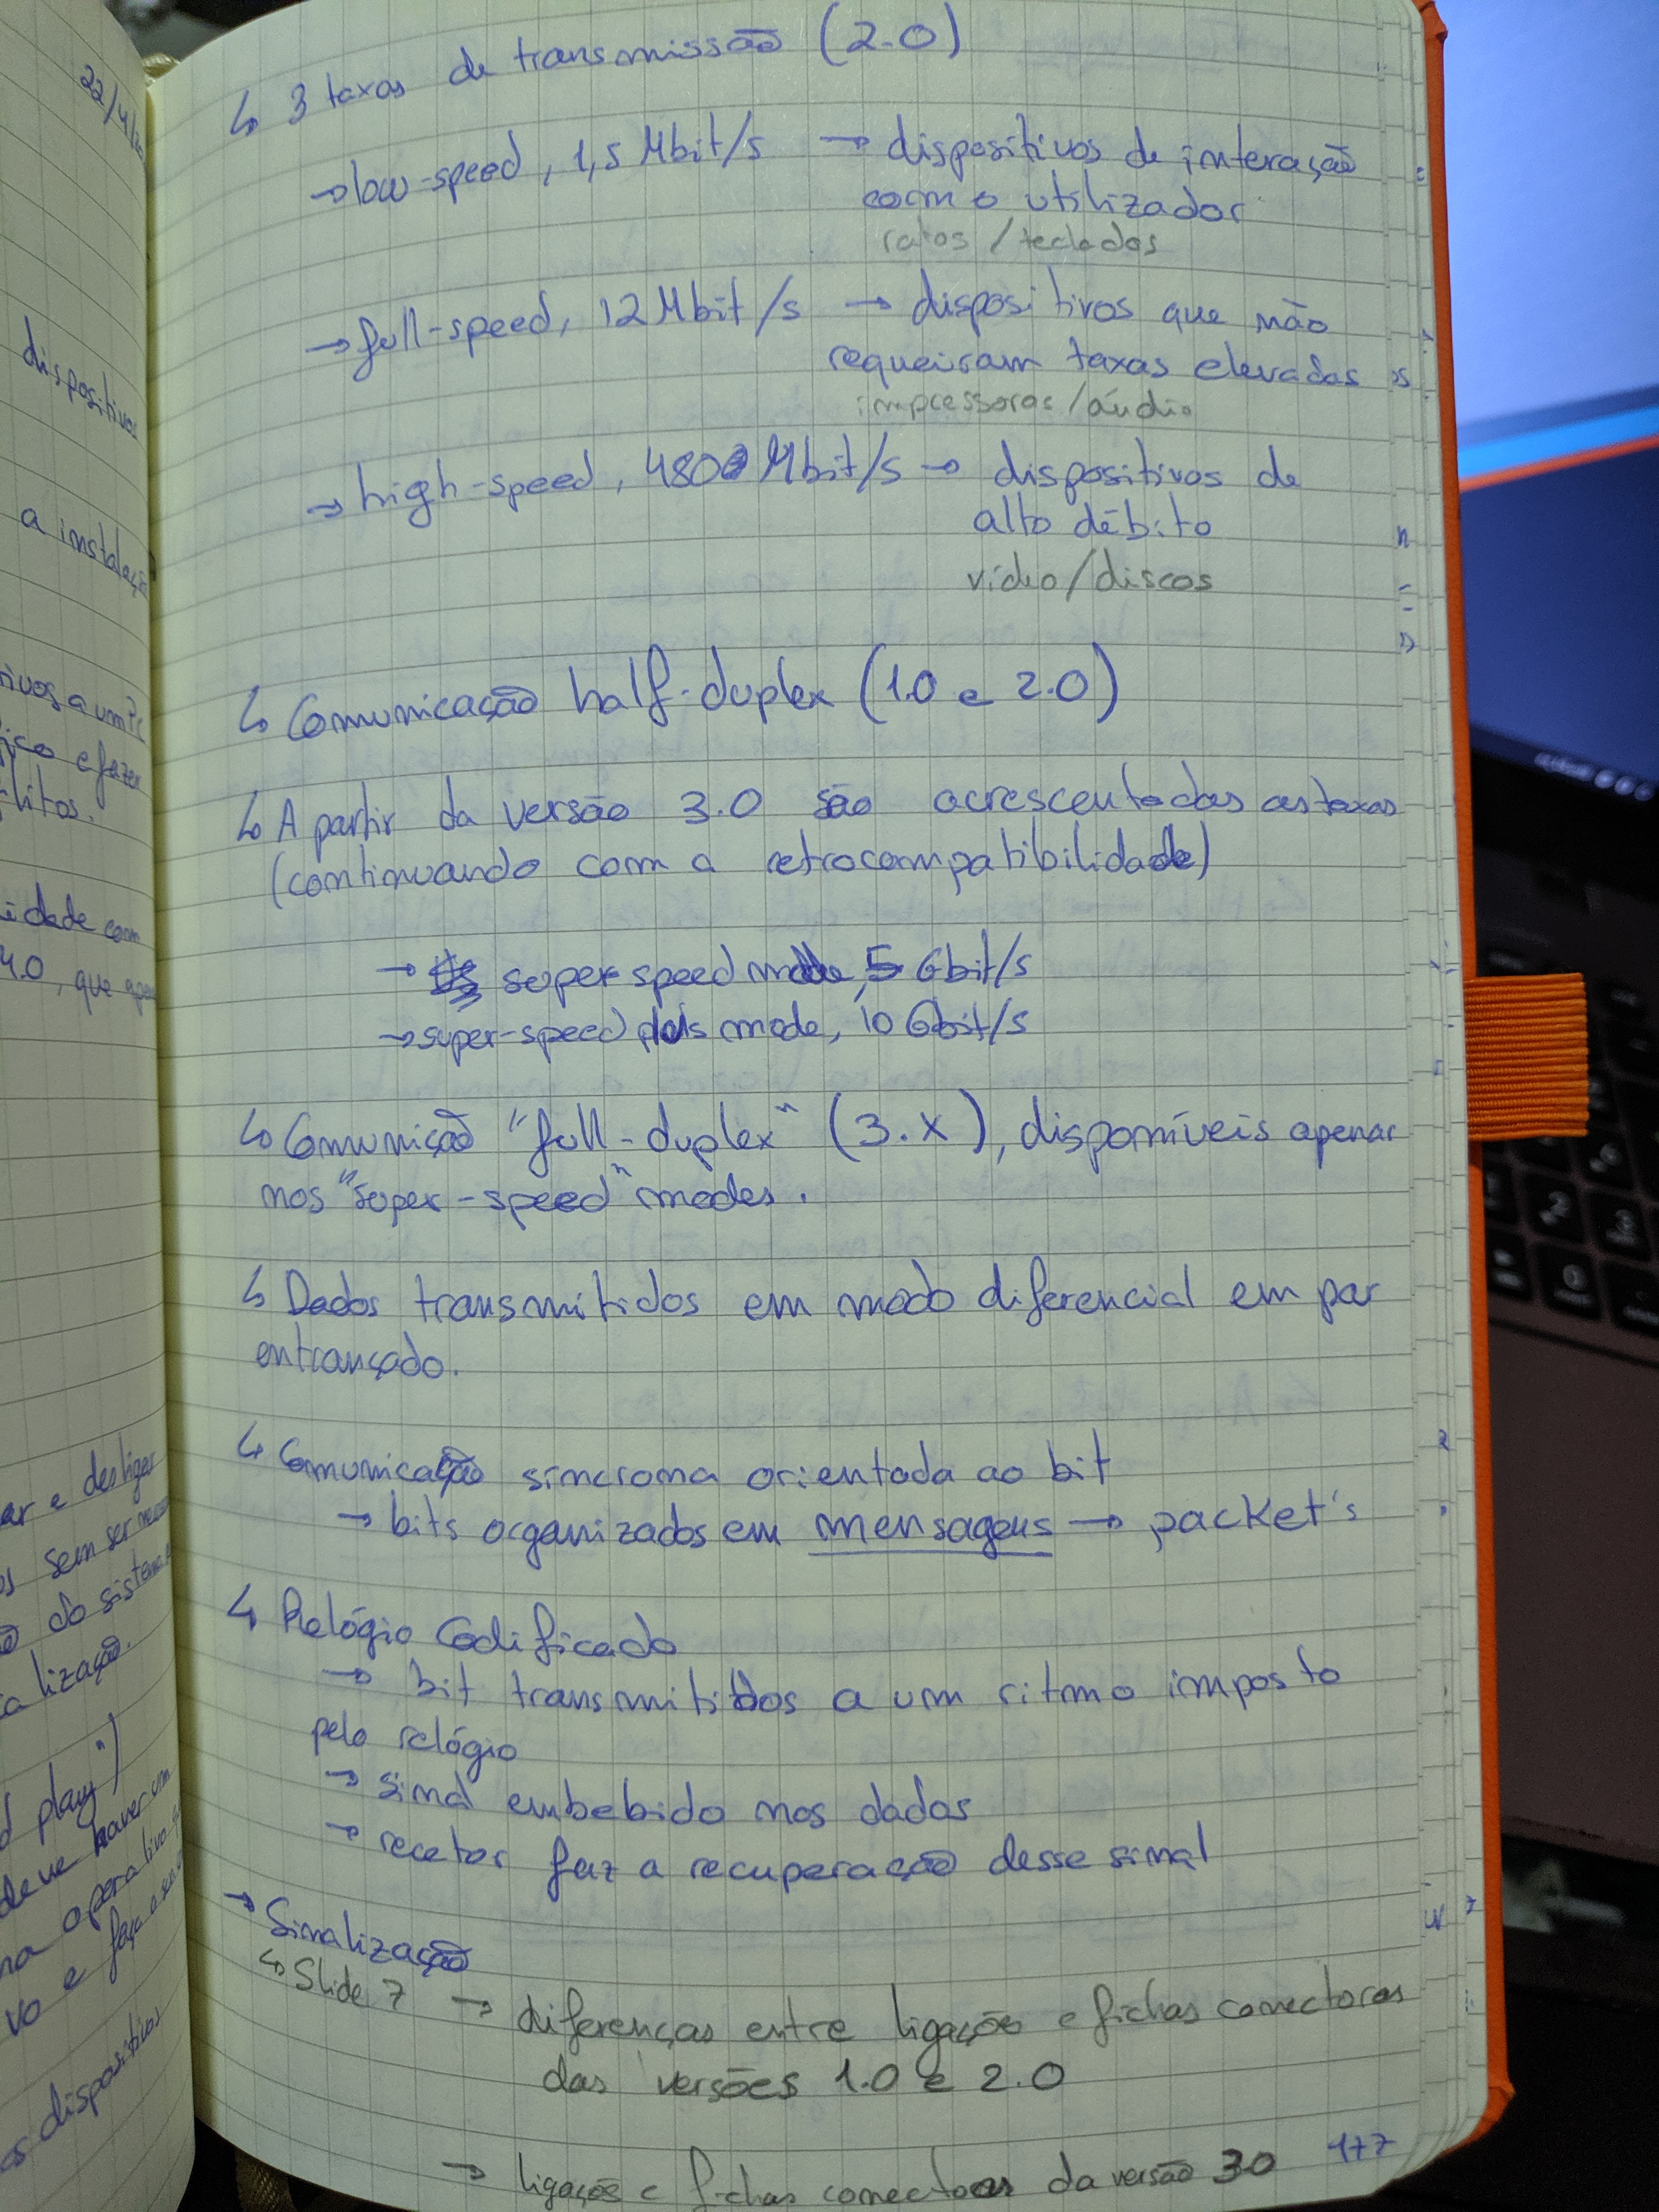 22/4/
dispositivos
a instalação
ivos a um PC
e fazer
litos.
idade com
4.0, que
ar e desligar
os sem ser
do sistema
lização.
d play")
deve haver um
na operativo
vo e faça o
os dispositivos
↳ 3 taxas de transmissão (2.0)
→ low-speed, 1,5 Mbit/s → dispositivos de interação
com o utilizador
ratos / teclados
→ full-speed, 12 Mbit/s → dispositivos que não
requeiram taxas elevadas
impressoras / áudio
→ high-speed, 480 Mbit/s → dispositivos de
alto débito
vídeo / discos
↳ Comunicação half-duplex (1.0 e 2.0)
↳ A partir da versão 3.0 são acrescentadas as taxas
(continuando com a retrocompatibilidade)
→ super speed mode, 5 Gbit/s
→ super-speed plus mode, 10 Gbit/s
↳ Comunição "full-duplex" (3.X), disponíveis apenar
nos "super-speed" modes.
↳ Dados transmitidos em modo diferencial em par
entrançado.
↳ Comunicação síncrona orientada ao bit
→ bits organizados em mensagens → packet's
↳ Relógio Codificado
→ bit transmitidos a um ritmo imposto
pelo relógio
→ sinal embebido nos dados
→ recetor faz a recuperação desse sinal
→ Sinalização
↳ Slide 7 → diferenças entre ligações e fichas conectoras
das versões 1.0 e 2.0
→ ligações e fichas conectoras da versão 3.0
177